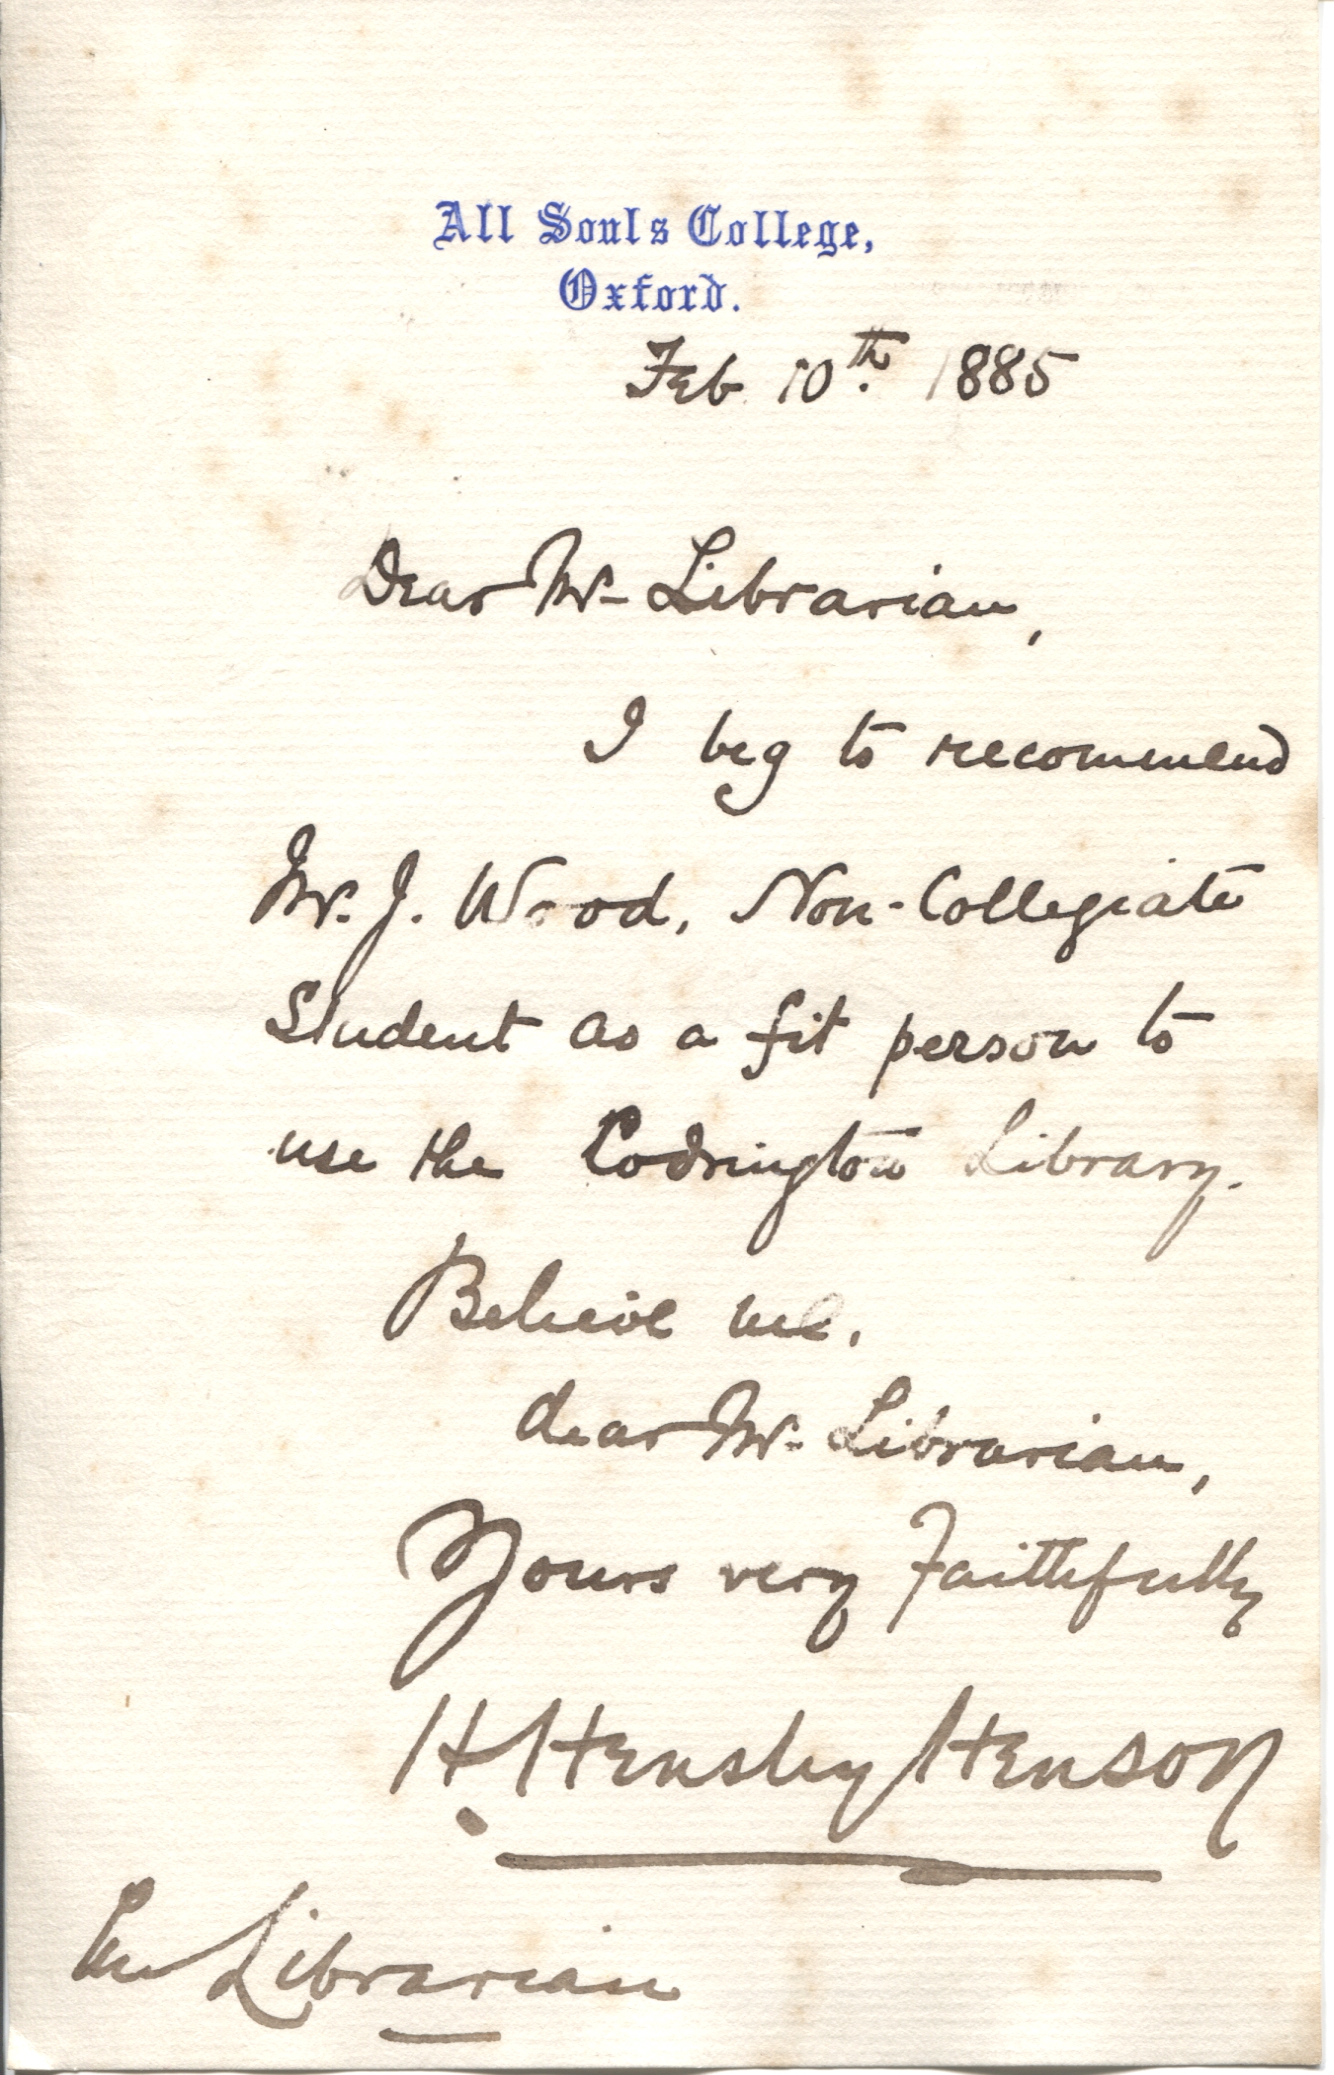 All Souls College,
Oxford.
Feb 10th. 1885
Dear Mr. Librarian,
I beg to recommend
Mr. J. Wood, Non-Collegiate
Student as a fit person to
use the Codrington Library.
Believe me,
dear Mr. Librarian,
Yours very Faithfully
H. Hensley Henson
The Librarian